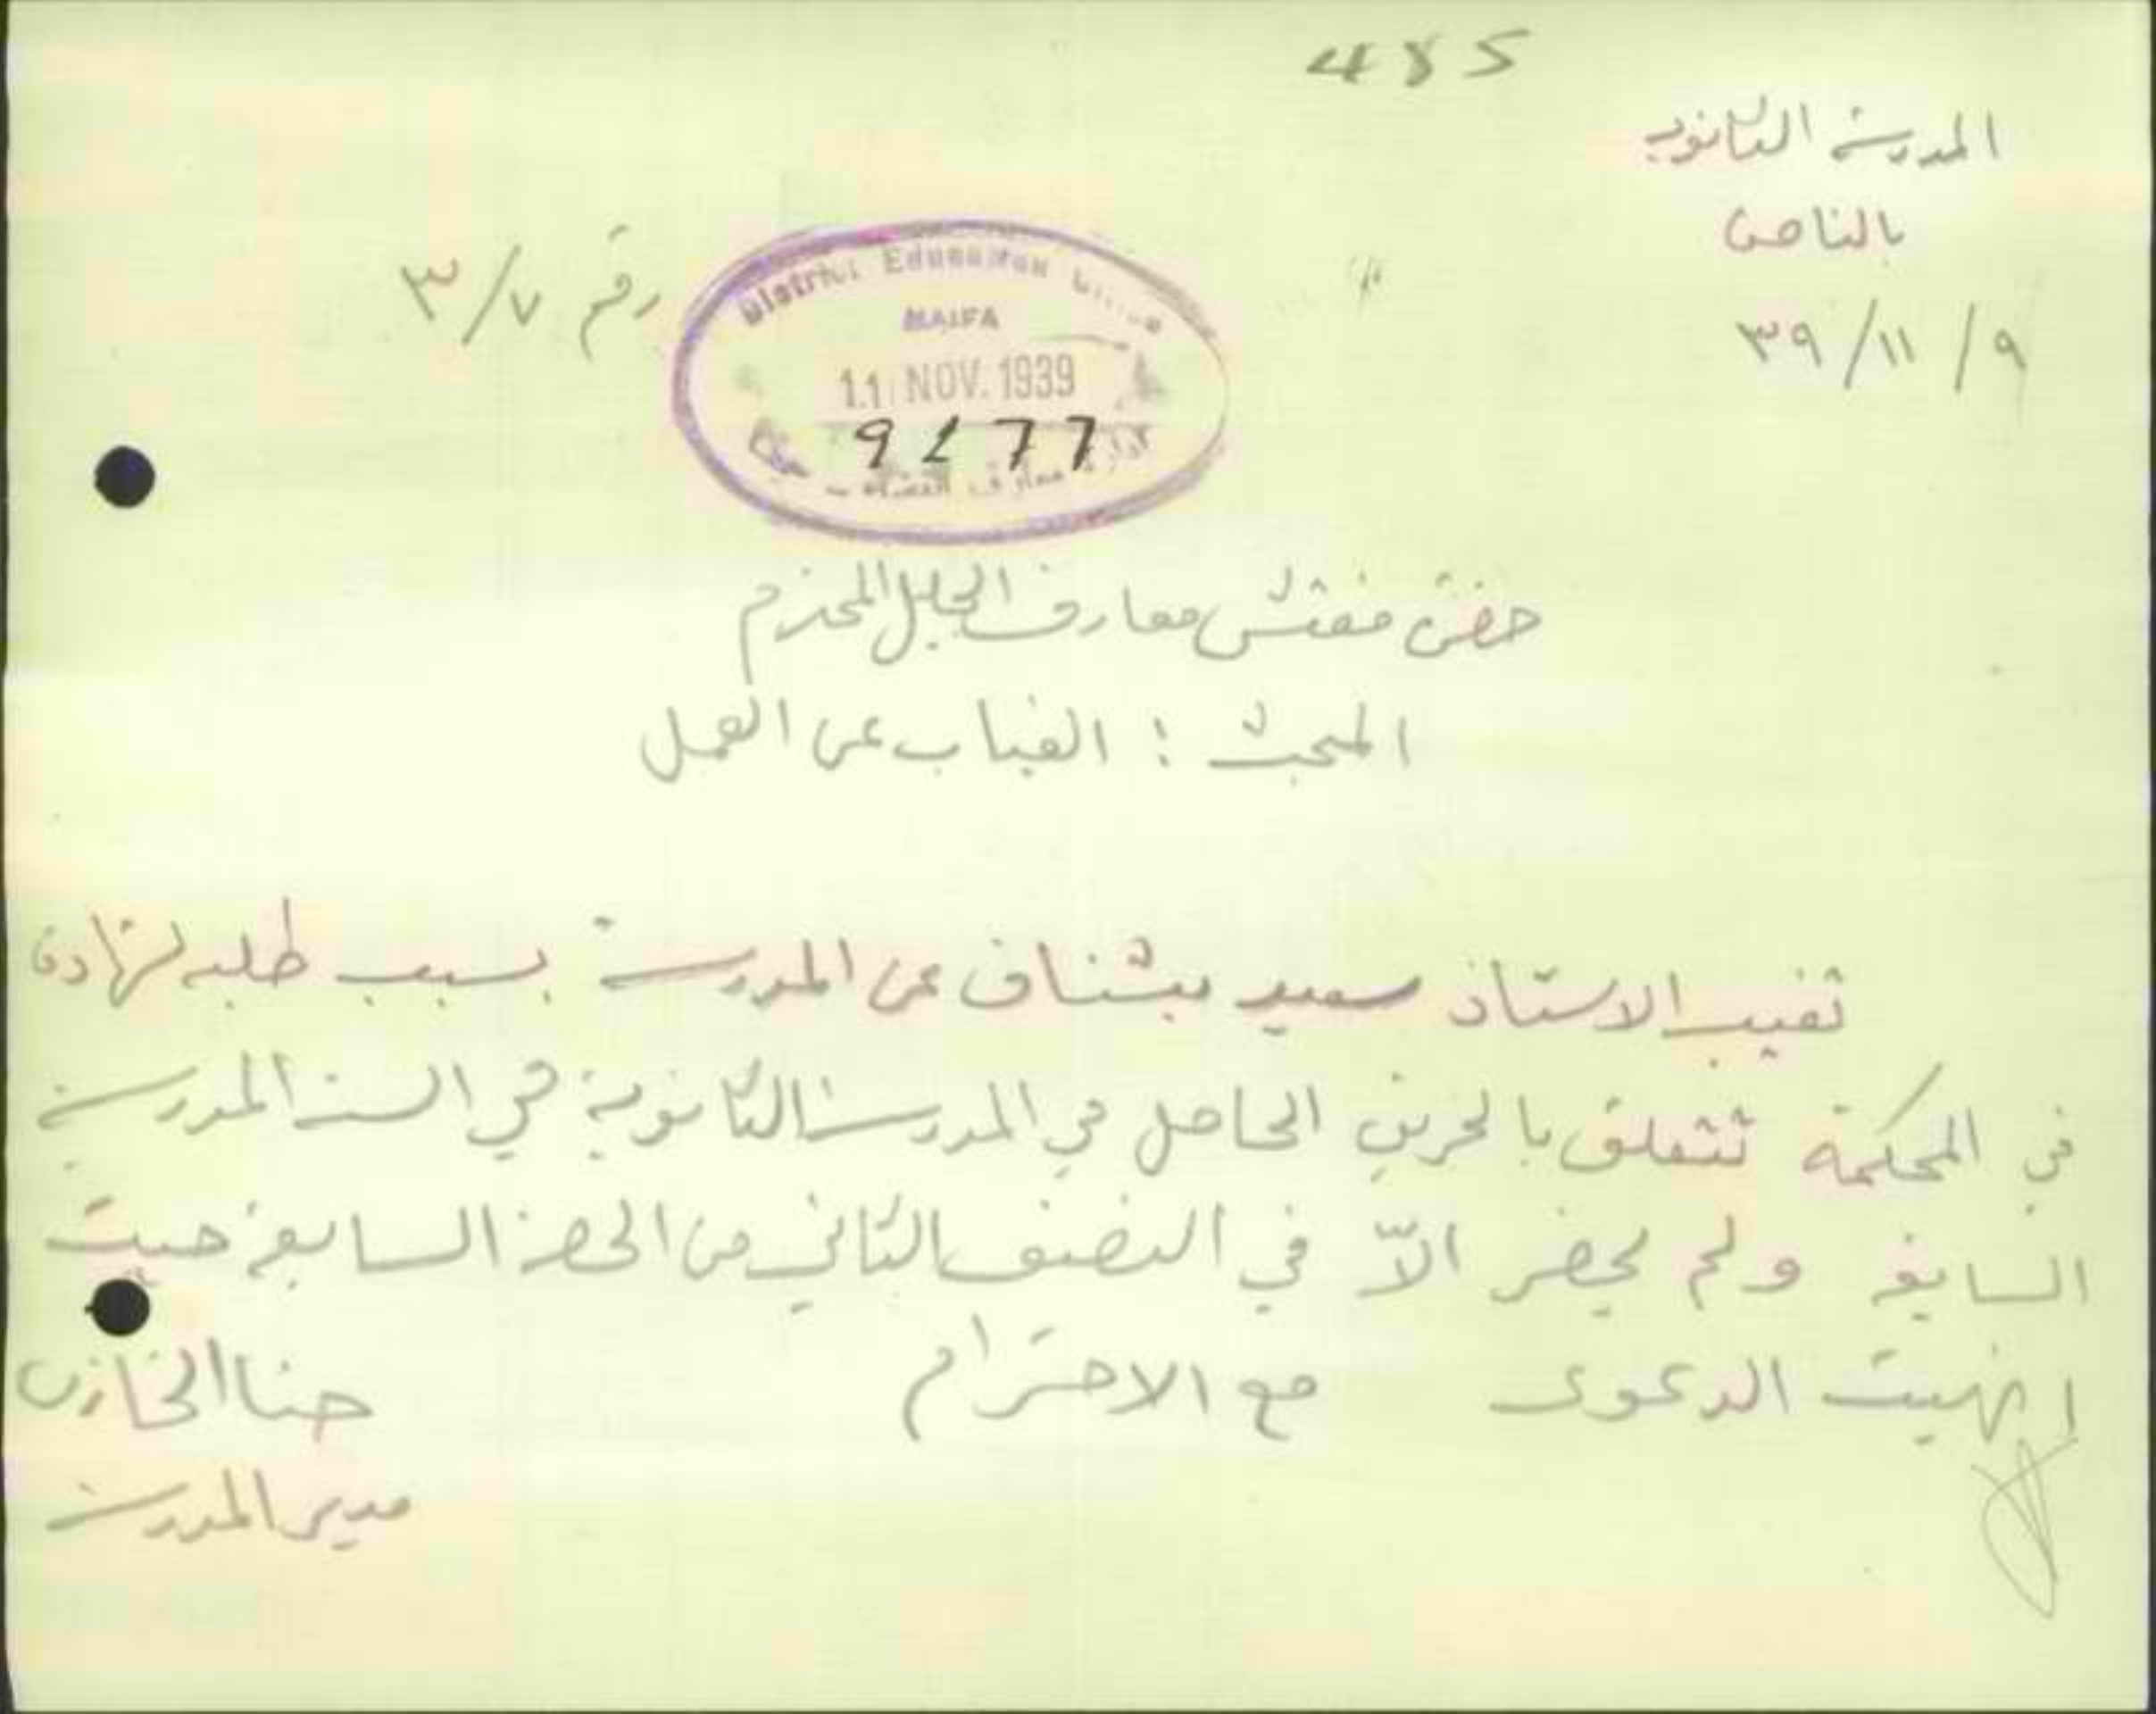 485
المدرسة الثانوية
بالناصرة
٩ / ١١ / ٣٩
رقم ٣/٧
District Education
HAIFA
11 NOV. 1939
9477
ادارة معارف القضاء - حيفا
حضرة مفتش معارف الجليل المحترم
المبحث : الغياب عن العمل
تغيب الاستاذ سعيد بشناق عن المدرسة بسبب طلبه لشهادة
في المحكمة تتعلق بالحريق الحاصل في المدرسة الثانوية في السنة المدرسية
السابقة ولم يحضر الاّ في النصف الثاني من الحصة السابعة حيث
انهيت الدعوى مع الاحترام
حنا الخازن
مدير المدرسة